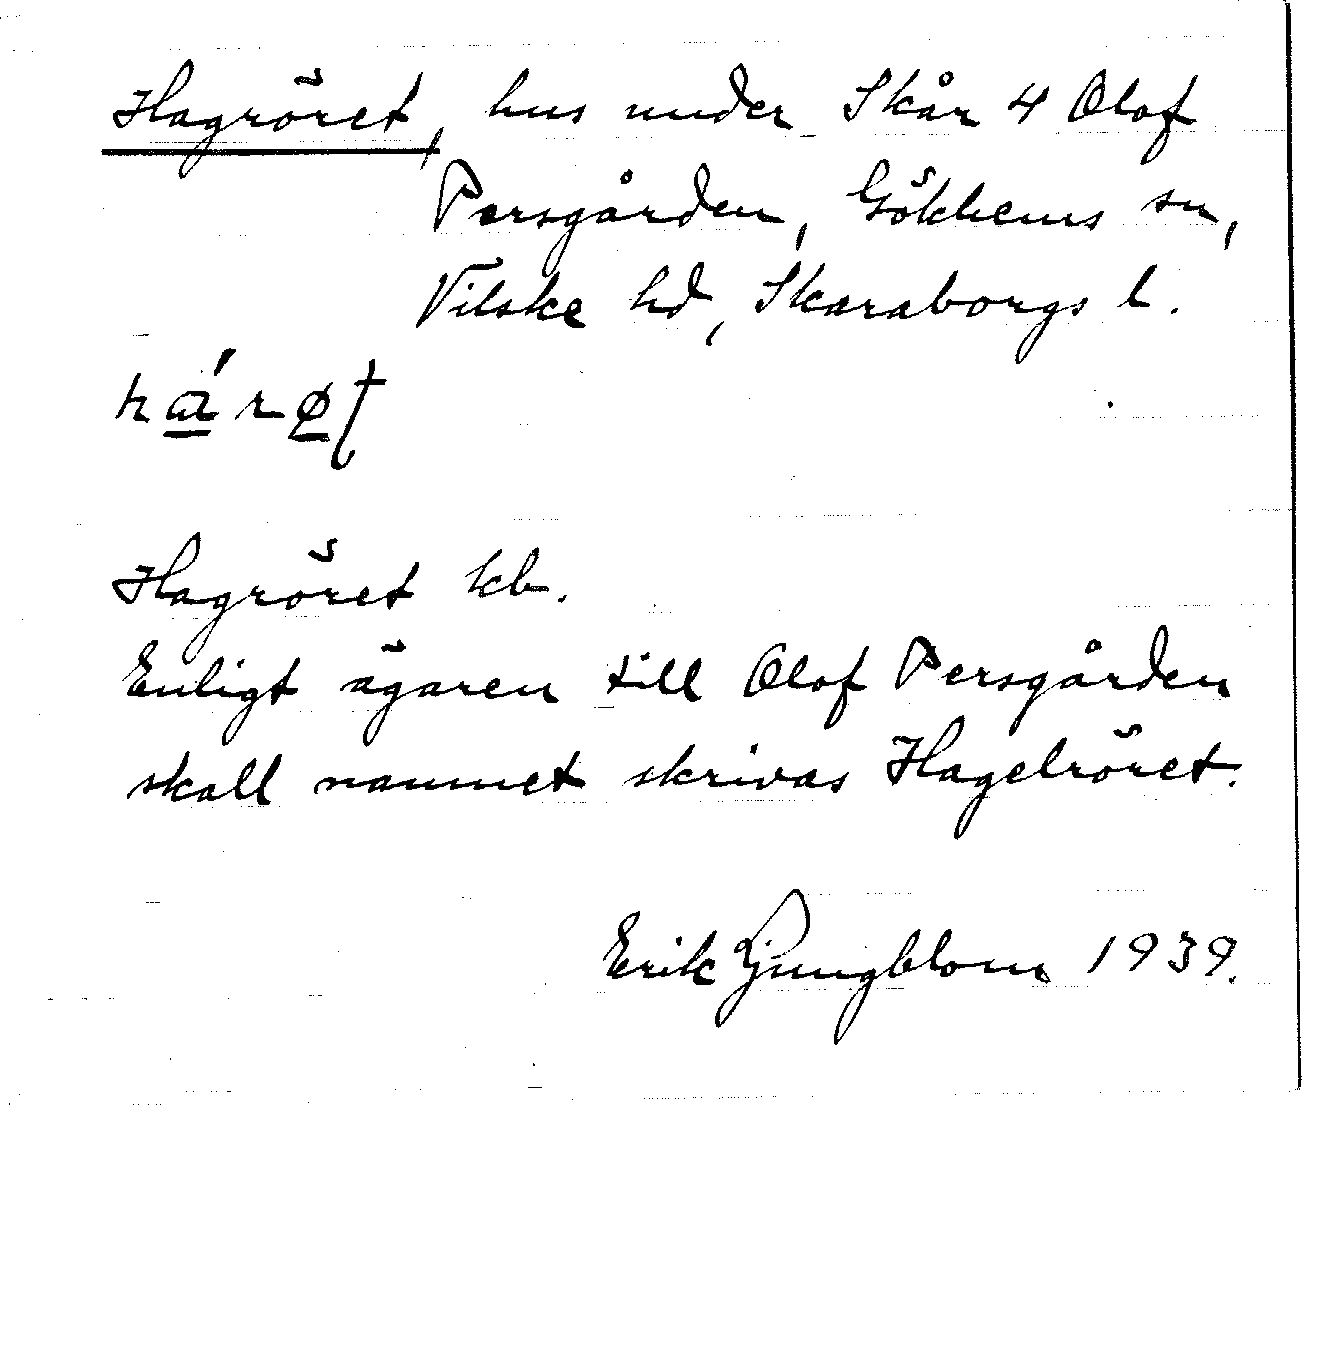 Hagröret, hus under Skår 4 Olof
Persgården, Gökhems sn,
Vilske hd, Skaraborgs l.
Hagröret kb.
Enligt ägaren till Olof Persgården
skall namnet skrivas Hagelröret.
Erik Ljungblom 1939.